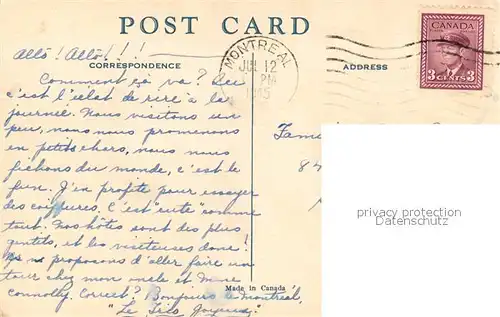 POST CARD
CORRESPONDENCE
ADDRESS
MONTREAL
JUL 12
PM
CANADA
3 CENTS 3
Allô! Allô!!!!
Comment ça va? Ici
c'est l'éclat de rire à la
journée. Nous visitons un
peu, nous nous promenons
en petits chars, nous nous
fichons du monde, c'est le
fun. J'en profite pour essayer
des coiffures. C'est "cute" comme
tout. Nos hôtes sont des plus
gentils, et les visiteuses donc!
Ns ns proposons d'aller faire un
tour chez mon oncle et Mme
Connolly. Correct? Bonjours de Montréal,
"Le Trio Joyeux"
Made in Canada
Fam
84
privacy protection
Datenschutz